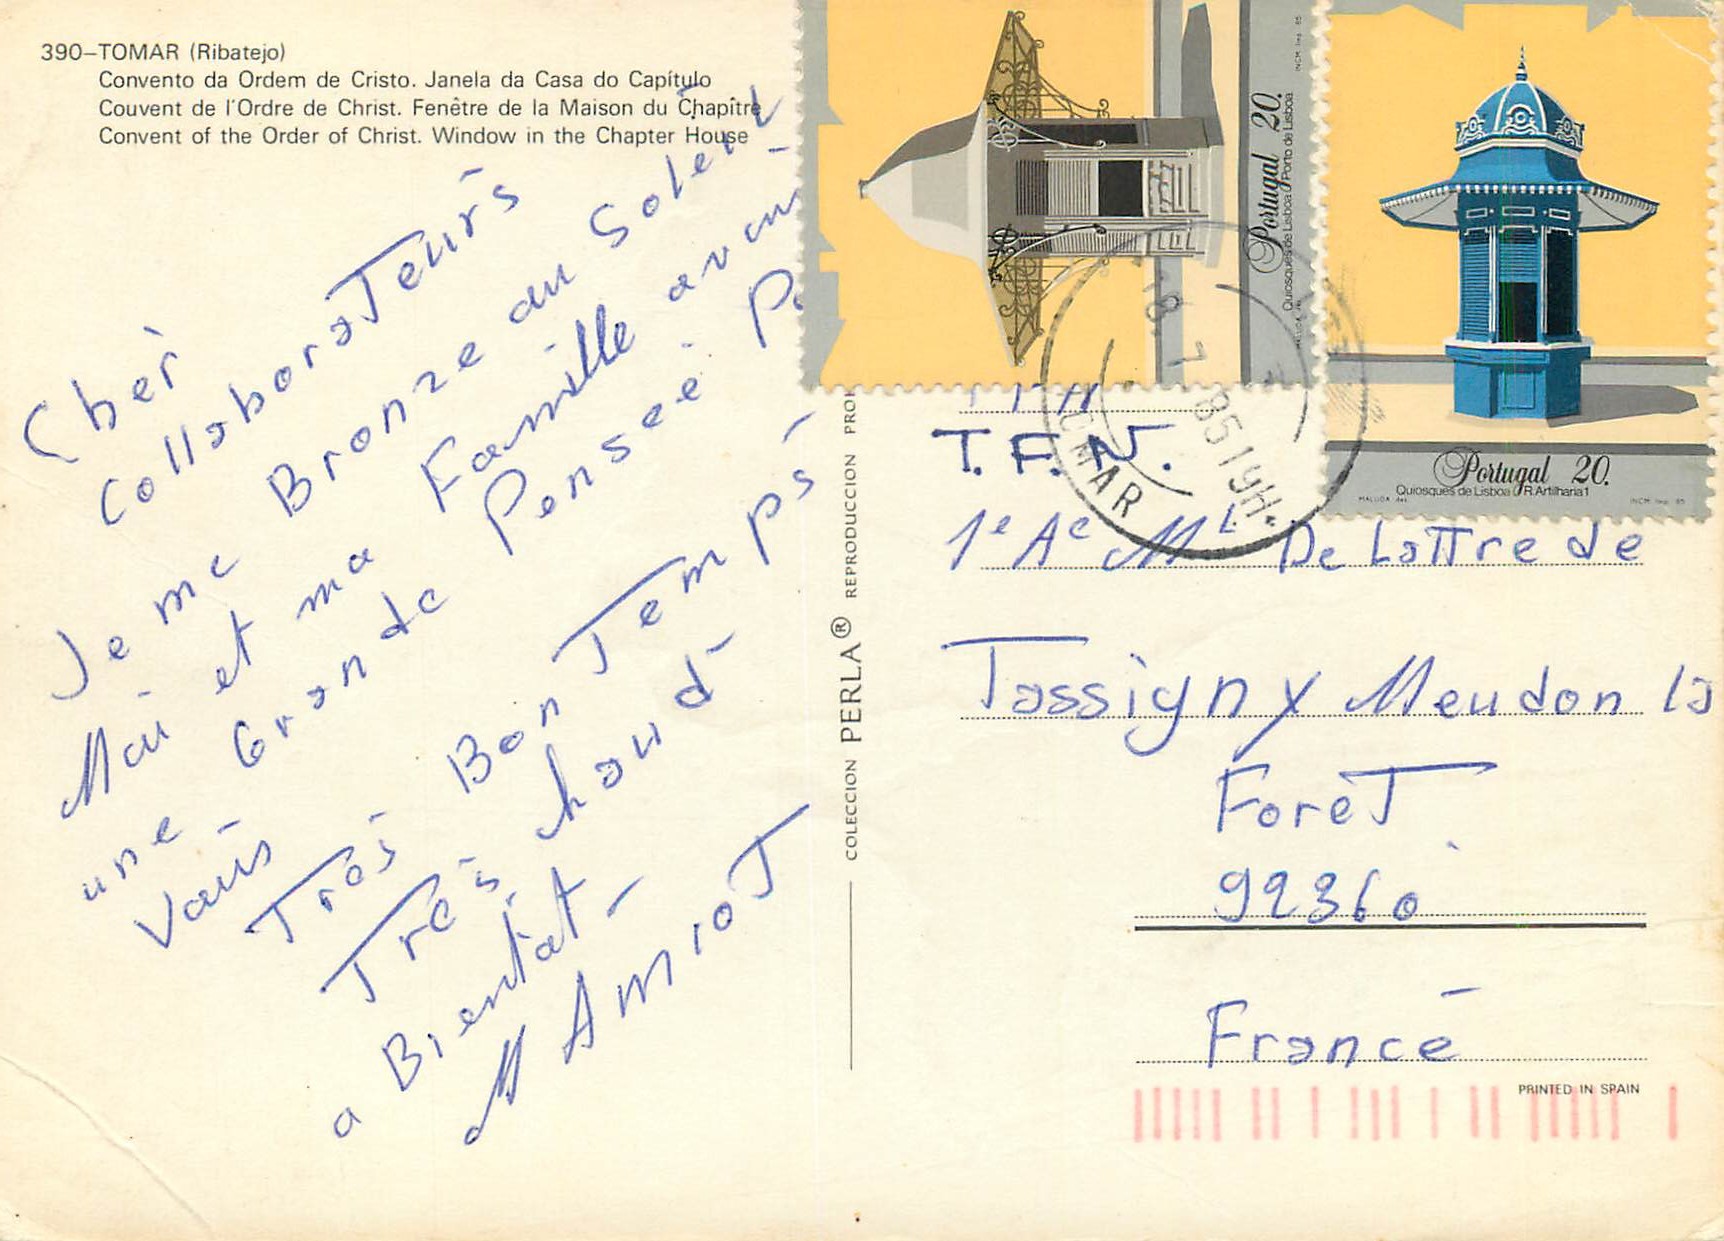 390–TOMAR (Ribatejo)
Convento da Ordem de Cristo. Janela da Casa do Capítulo
Couvent de l'Ordre de Christ. Fenêtre de la Maison du Chapître
Convent of the Order of Christ. Window in the Chapter House
Cher
CollaboraTeurs
Je me Bronze au Soleil
Moi et ma Famille avons
une Grande Pensée
Vous
Tres Bon Temps
Tres chaud
a Bientat
M AmioT
COLECCION PERLA® REPRODUCCION PROH
Portugal 20.
Quiosques de Lisboa / Porto de Lisboa
MALUDA des. INCM Imp. 85
Portugal 20.
Quiosques de Lisboa / R. Artilharia 1
MALUDA des. INCM Imp. 85
18. 7 85 19H.
TOMAR
T.F.N.
1e Ac Ml De LaTTre de
Tassigny Meudon la
ForèT
92360
France
PRINTED IN SPAIN